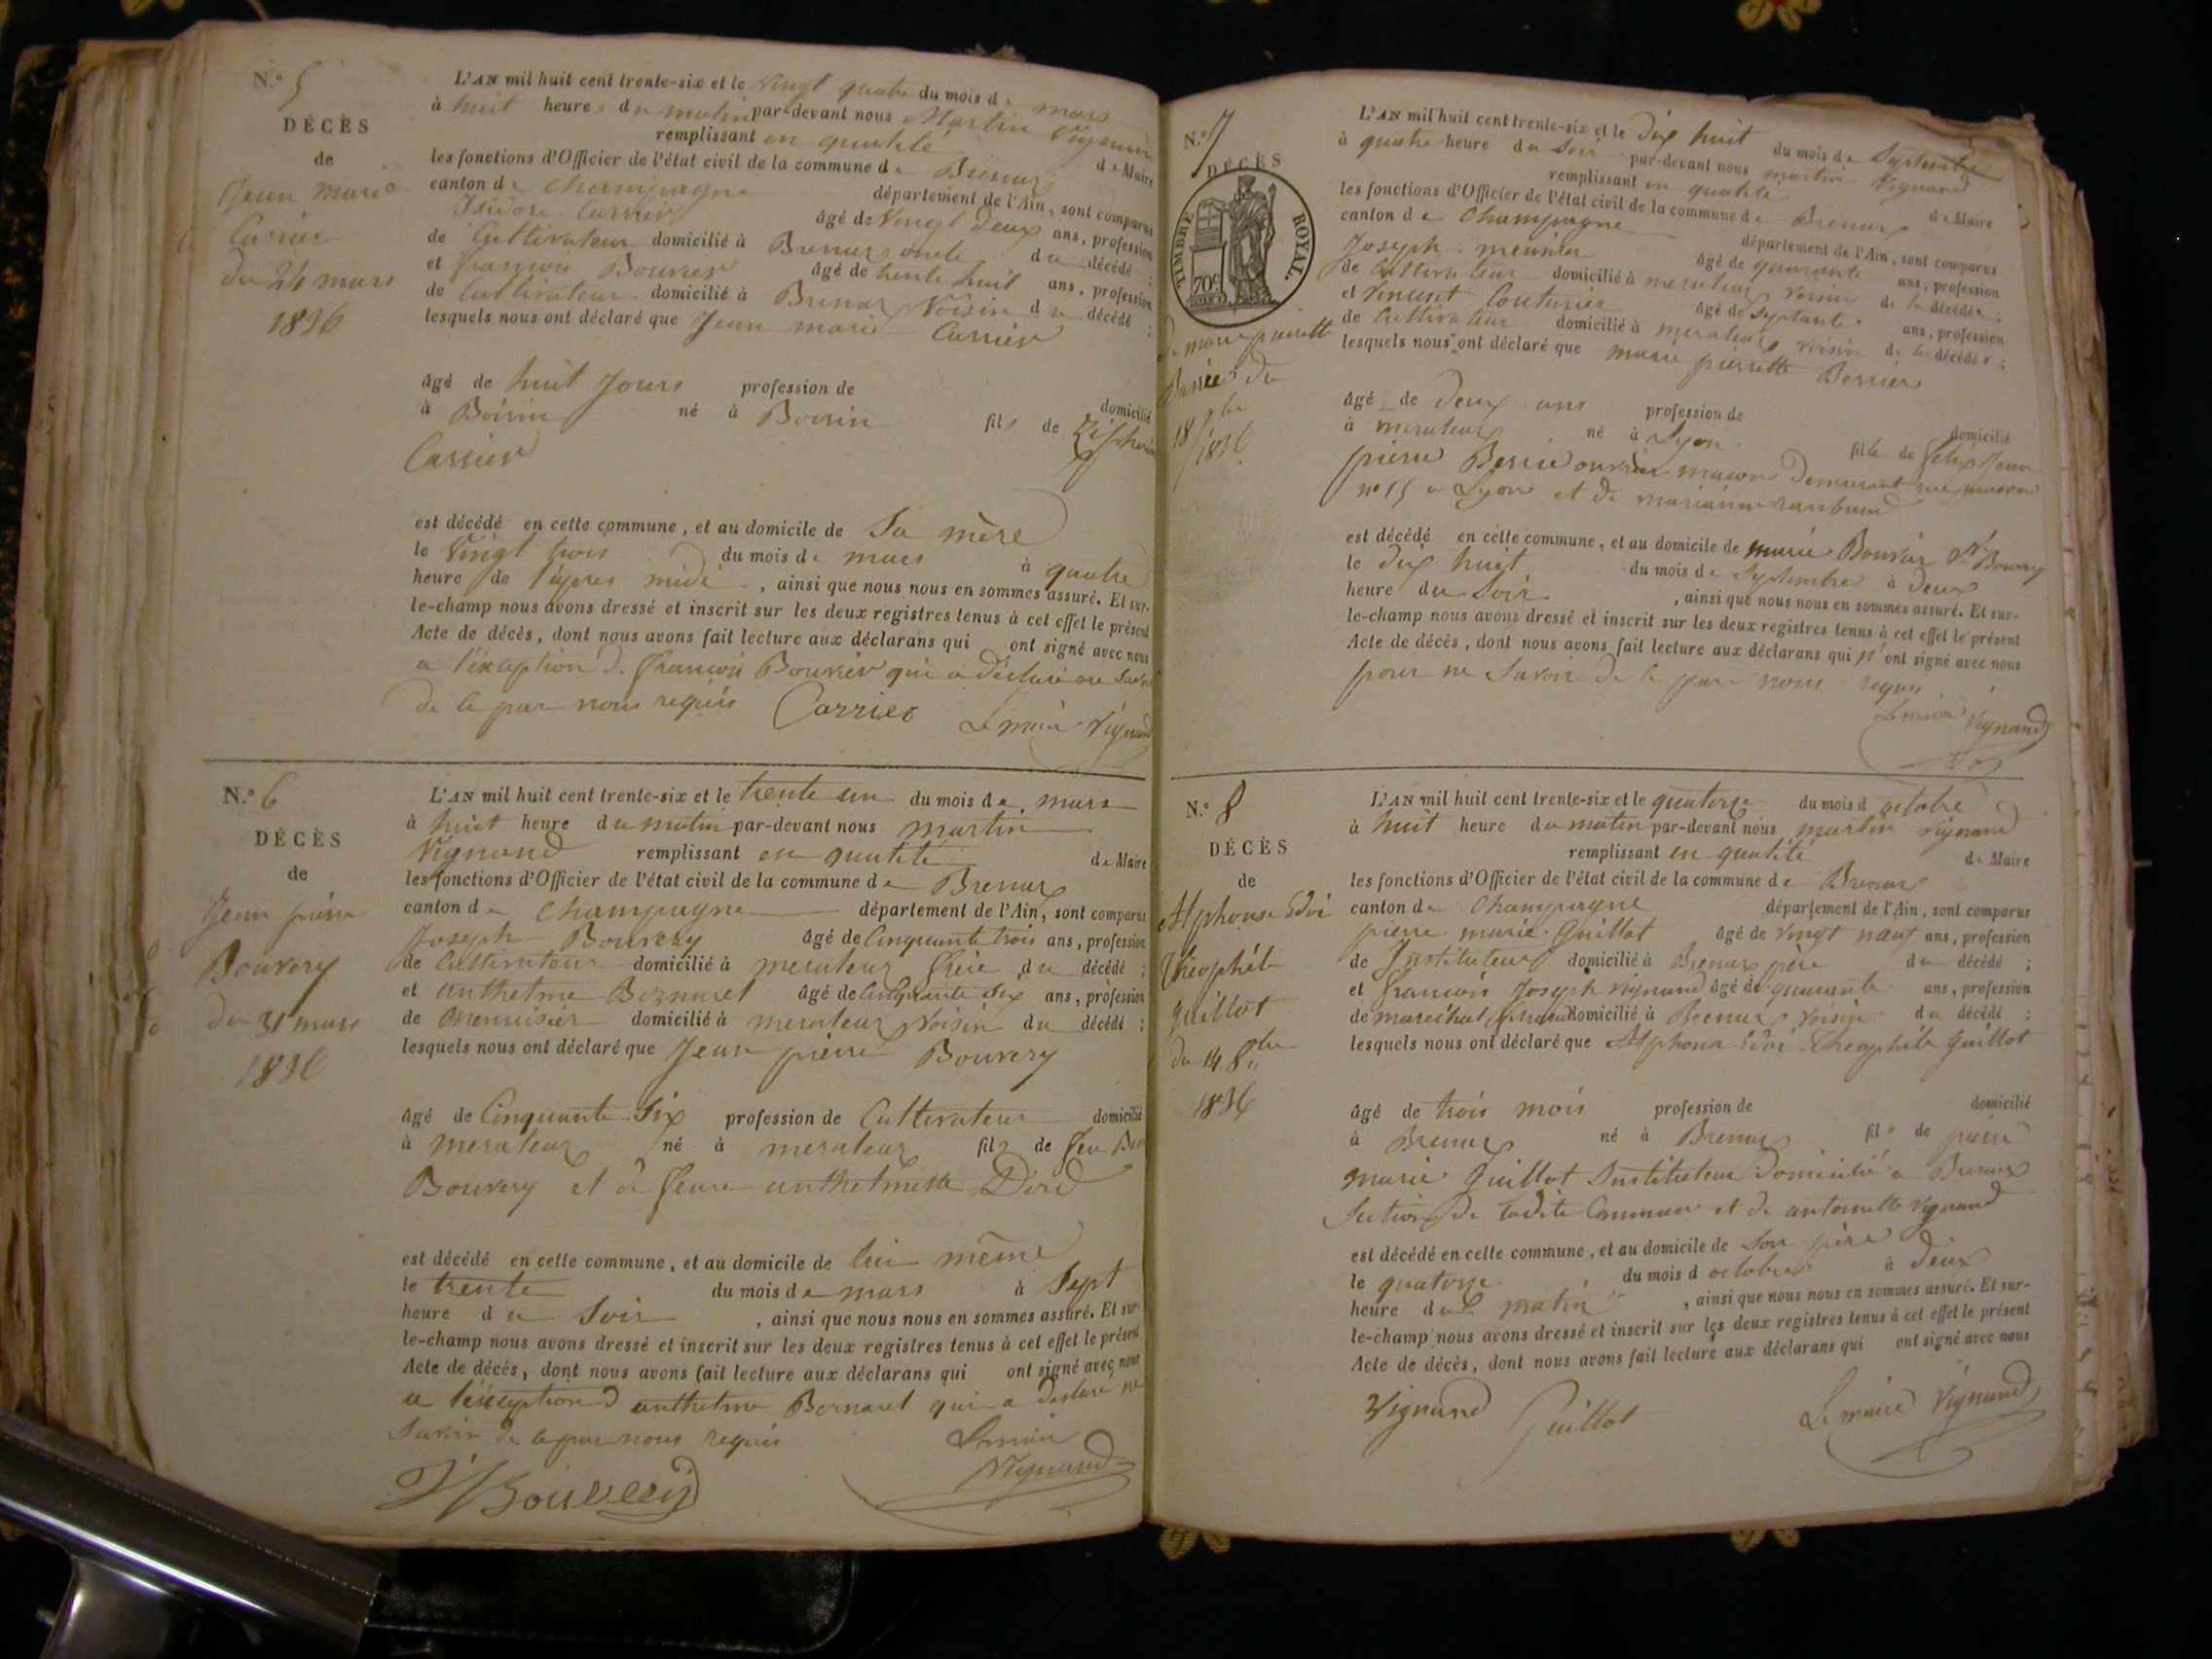 N.° 5
DÉCÈS
de
Jean marie
Carrier
du 24 mars
1836
L'AN mil huit cent trente-six et le vingt quatre du mois de mars
à huit heures du matin par-devant nous Martin Vignand
remplissant en qualité de Maire
les fonctions d'Officier de l'état civil de la commune de Brenaz
canton de Champagne département de l'Ain, sont comparus
Isidore Carrier âgé de vingt deux ans, profession
de Cultivateur domicilié à Brenaz oncle du décédé ;
et francois Bouvier âgé de trente huit ans, profession
de Cultivateur domicilié à Brenaz Voisin du décédé ;
lesquels nous ont déclaré que Jean marie Carrier
âgé de huit Jours profession de domicilié
à Boirin né à Boirin fils de
Carrier
est décédé en cette commune, et au domicile de Sa mère
le Vingt trois du mois de mars à quatre
heure de l'apres midi, ainsi que nous nous en sommes assuré. Et sur-
le-champ nous avons dressé et inscrit sur les deux registres tenus à cet effet le présent
Acte de décès, dont nous avons fait lecture aux déclarans qui ont signé avec nous
a l'éxception de francois Bouvier qui a déclaré ne Savoir
de le par nous requis Carrier Le maire Vignand
N.° 6
DÉCÈS
de
Jean pierre
Bouvery
du 31 mars
1836
L'AN mil huit cent trente-six et le trente un du mois de mars
à huit heure du matin par-devant nous martin
Vignand remplissant en qualité de Maire
les fonctions d'Officier de l'état civil de la commune de Brenaz
canton de Champagne département de l'Ain, sont comparus
Joseph Bouvery âgé de Cinquante trois ans, profession
de Cultivateur domicilié à meraleaz frère du décédé ;
et anthelme Bernaret âgé de Cinquante Six ans, profession
de menuisier domicilié à meraleaz Voisin du décédé ;
lesquels nous ont déclaré que Jean pierre Bouvery
âgé de Cinquante Six profession de Cultivateur domicilié
à meraleaz né à meraleaz fils de feu
Bouvery et de feue anthelmette
est décédé en cette commune, et au domicile de lui même
le trente du mois de mars à Sept
heure du Soir, ainsi que nous nous en sommes assuré. Et sur-
le-champ nous avons dressé et inscrit sur les deux registres tenus à cet effet le présent
Acte de décès, dont nous avons fait lecture aux déclarans qui ont signé avec nous
a l'éxception d anthelme Bernaret qui a declaré ne
Savoir de le par nous requis Le maire
J Bouvery Vignand
N.° 7
DÉCÈS
TIMBRE ROYAL.
70c
de marie pierrette
du
18 7bre
1836
L'AN mil huit cent trente-six et le Dix huit du mois de Septembre
à quatre heure du Soir par-devant nous martin Vignand
remplissant en qualité de Maire
les fonctions d'Officier de l'état civil de la commune de Brenaz
canton de Champagne département de l'Ain, sont comparus
Joseph meunier âgé de quarante ans, profession
de Cultivateur domicilié à meraleaz voisin de la décédée ;
et Vincent Couturier âgé de Septante ans, profession
de Cultivateur domicilié à meraleaz voisin de la décédée ;
lesquels nous ont déclaré que marie pierrette
âgé de Deux ans profession de domicilié
à meraleaz né à Lyon fille de felix
pierre ouvrier macon Demeurant rue
n° 15 a Lyon et de
est décédé en cette commune, et au domicile de marie Bouvier Bouvery
le dix huit du mois de Septembre à Deux
heure du Soir, ainsi que nous nous en sommes assuré. Et sur-
le-champ nous avons dressé et inscrit sur les deux registres tenus à cet effet le présent
Acte de décès, dont nous avons fait lecture aux déclarans qui n'ont signé avec nous
pour ne Savoir de le par nous requis
Le maire Vignand
N.° 8
DÉCÈS
de
Alphonse Edoi
Théophile
guillot
du 14 8bre
1836
L'AN mil huit cent trente-six et le quatorze du mois d octobre
à huit heure du matin par-devant nous martin Vignand
remplissant en qualité de Maire
les fonctions d'Officier de l'état civil de la commune de Brenaz
canton de Champagne département de l'Ain, sont comparus
pierre marie Guillot âgé de vingt neuf ans, profession
de Instituteur domicilié à Brenaz père du décédé ;
et francois Joseph Vignand âgé de quarante ans, profession
de marechal domicilié à Brenaz voisin du décédé ;
lesquels nous ont déclaré que Alphonse Edoi Théophile Guillot
âgé de trois mois profession de domicilié
à Brenaz né à Brenaz fils de pierre
marie Guillot Instituteur Domicilié a Brenaz
Section De ladite Commune et de antoinette Vignand
est décédé en cette commune, et au domicile de Son père
le quatorze du mois d octobre à deux
heure du matin, ainsi que nous nous en sommes assuré. Et sur-
le-champ nous avons dressé et inscrit sur les deux registres tenus à cet effet le présent
Acte de décès, dont nous avons fait lecture aux déclarans qui ont signé avec nous
Vignand Guillot Le maire Vignand